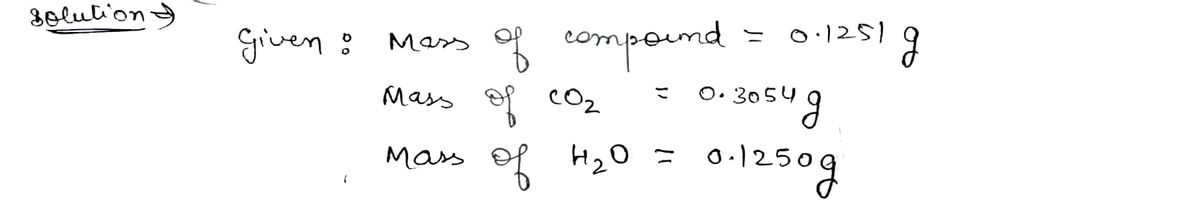 Solution →
Given : Mass of compound = 0.1251 g
Mass of CO₂ = 0.3054 g
Mass of H₂O = 0.1250 g